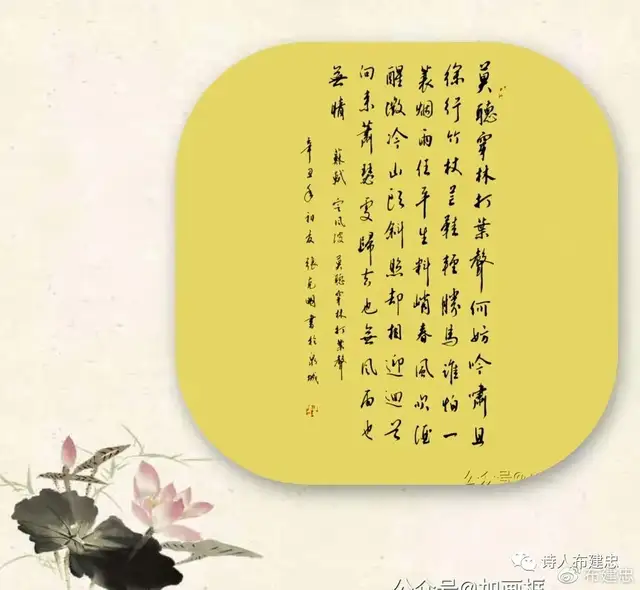 莫聽穿林打葉聲何妨吟嘯且
徐行竹杖芒鞋輕勝馬誰怕一
蓑烟雨任平生料峭春風吹酒
醒微冷山頭斜照却相迎迴首
向来蕭瑟處歸去也無風雨也
無情
蘇軾 定風波 莫聽穿林打葉聲
辛丑年初夏張克明書於泉城
公众号@
诗人布建忠
布建忠
公众号@加画框